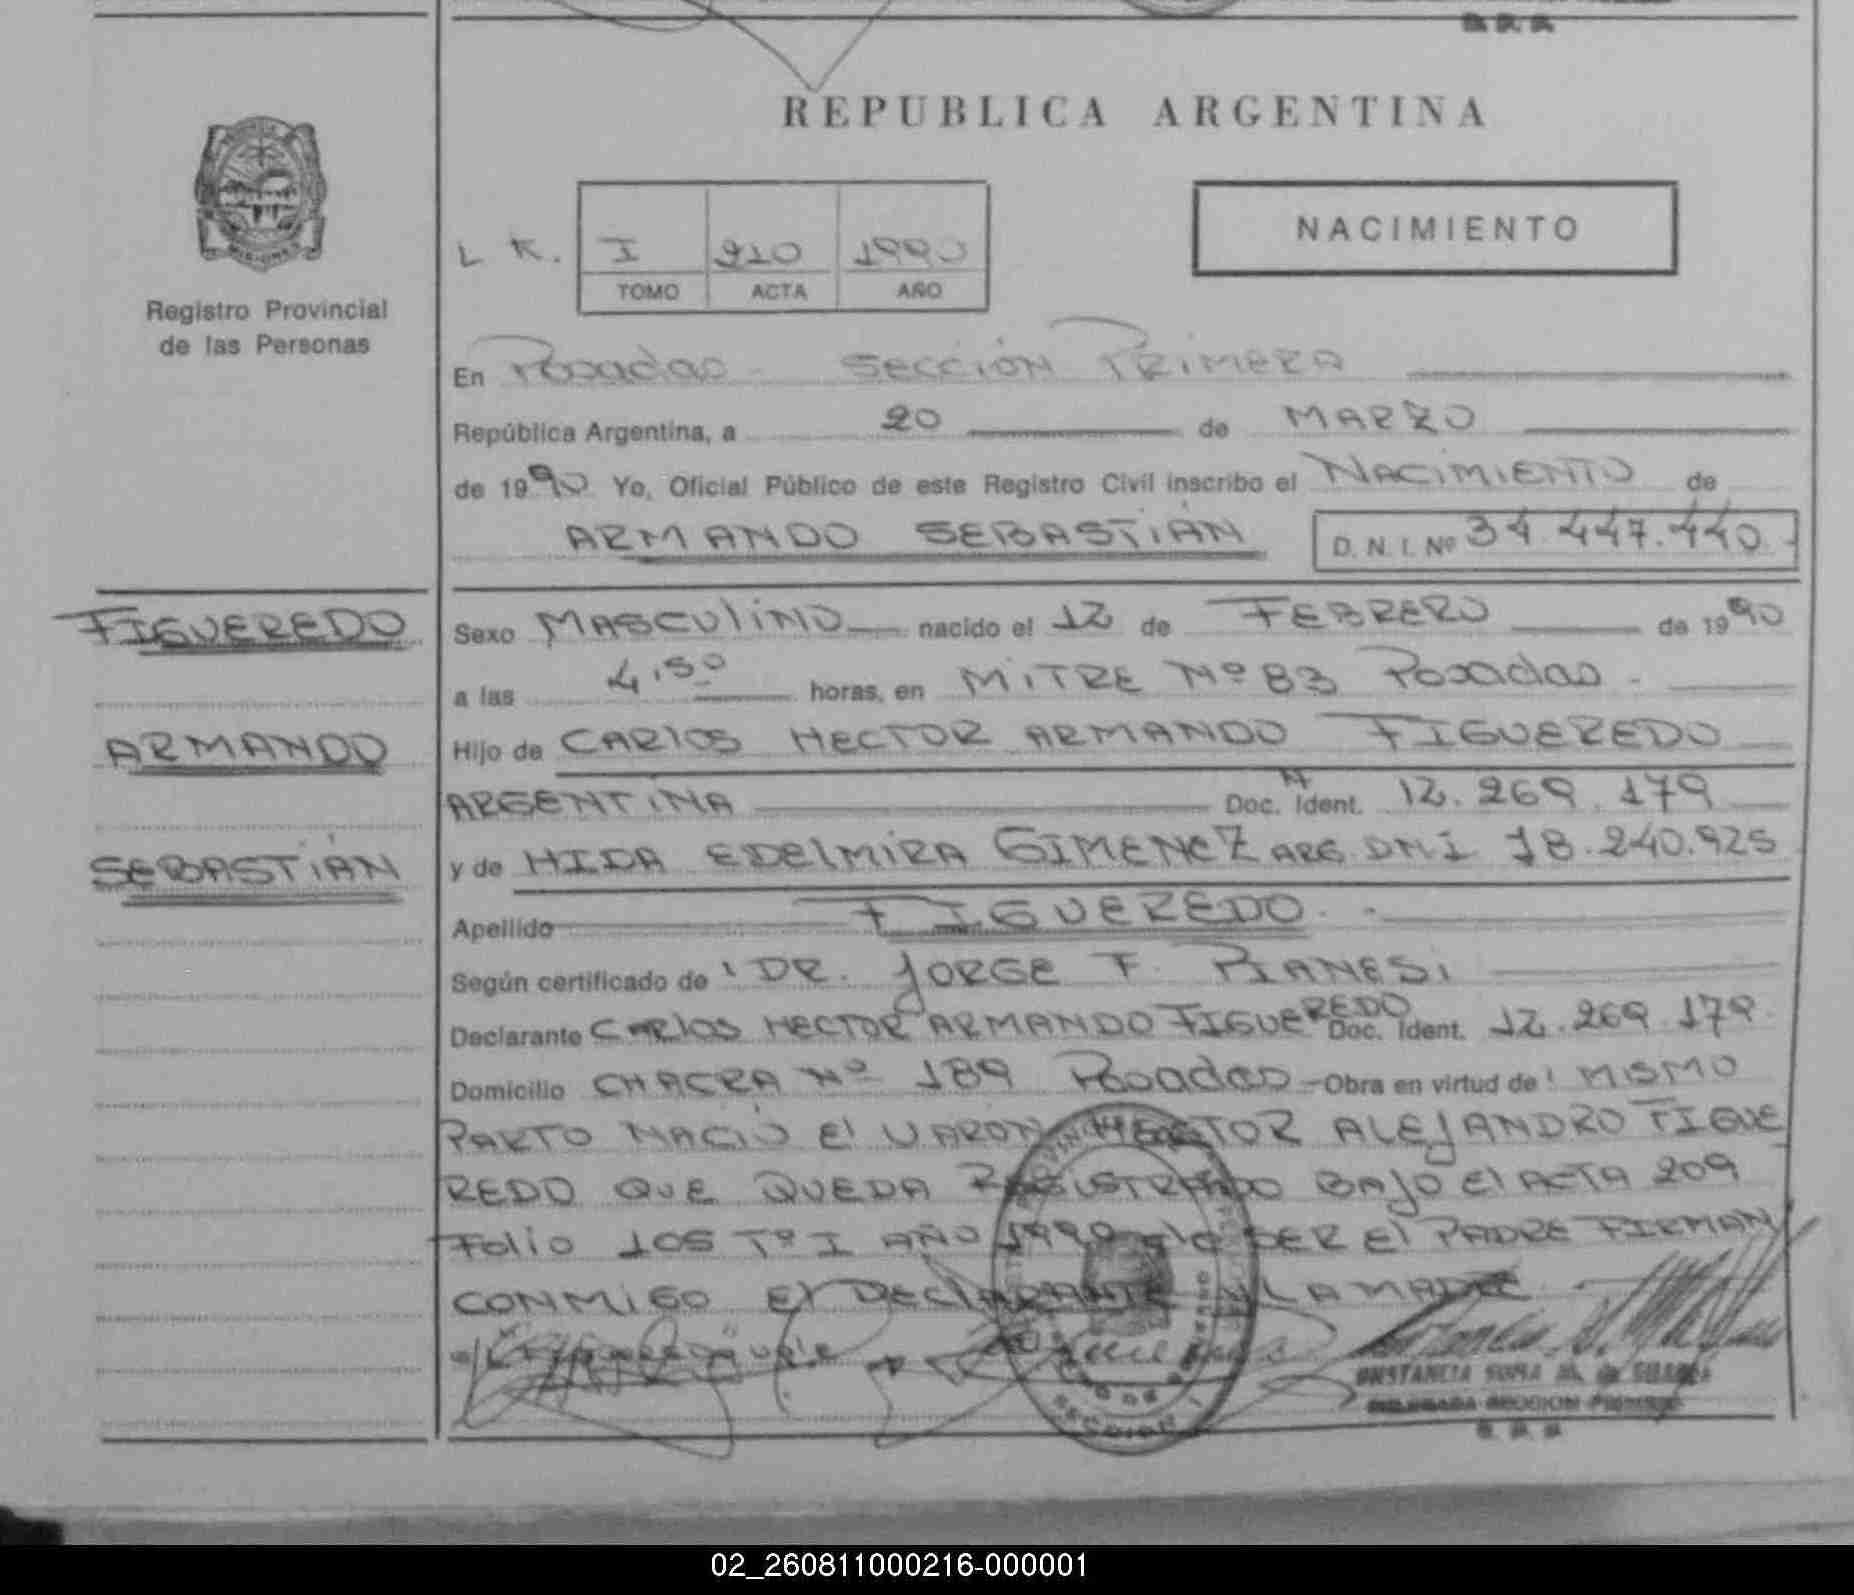 REPUBLICA ARGENTINA
NACIMIENTO
L R. I 210 1990
TOMO ACTA AÑO
Registro Provincial
de las Personas
En Posadas - Sección Primera
República Argentina, a 20 de MARZO
de 1990 Yo, Oficial Público de este Registro Civil inscribo el NACIMIENTO de
ARMANDO SEBASTIÁN D. N. I. Nº 34.447.440.-
FIGUEREDO
ARMANDO
SEBASTIÁN
Sexo MASCULINO nacido el 12 de FEBRERO de 1990
a las 4,50 horas, en MITRE Nº 83 Posadas -
Hijo de CARLOS HECTOR ARMANDO FIGUEREDO
ARGENTINA Doc. Ident. 12.269.179
y de HIDA EDELMIRA GIMENEZ ARG. DNI 18.240.925
Apellido FIGUEREDO.-
Según certificado de DR. JORGE F. PIANESI
Declarante CARLOS HECTOR ARMANDO FIGUEREDO Doc. Ident. 12.269.179
Domicilio CHACRA Nº 189 Posadas - Obra en virtud de MISMO
PARTO NACIÓ El VARÓN HECTOR ALEJANDRO FIGUE
REDO QUE QUEDA REGISTRADO BAJO El ACTA 209
Folio 105 Tº I AÑO 1990 SER El PADRE FIRMAN
CONMIGO El DECLARANTE Y LA MADRE
SECCION 1
02_260811000216-000001